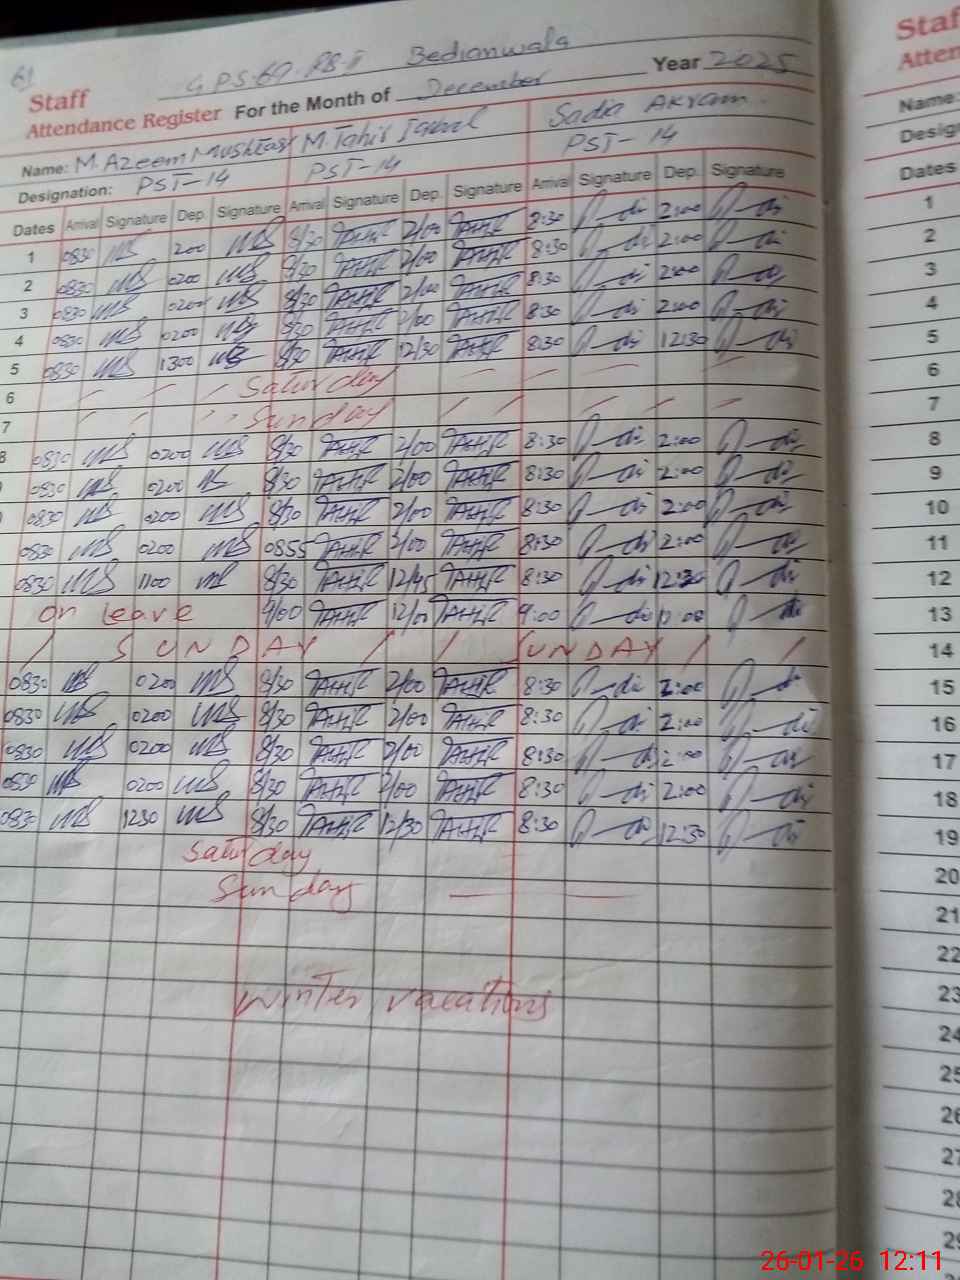 61
G.P.S. 69. RB-II Bedianwala
Staff
Attendance Register For the Month of December Year 2025
Name: M. Azeem Mushtaq M. Tahir Iqbal Sadia Akram.
Designation: PST-14 PST-14 PST-14
Dates Arrival Signature Dep. Signature Arrival Signature Dep. Signature Arrival Signature Dep. Signature
1 0830 MS 200 MS 8/30 TAHIR 2/00 TAHIR 8:30 2:00
2 0830 MS 0200 MS 8/30 TAHIR 2/00 TAHIR 8:30 2:00
3 0830 MS 0200 MS 8/30 TAHIR 2/00 TAHIR 8:30 2:00
4 0830 MS 0200 MS 8/30 TAHIR 2/00 TAHIR 8:30 2:00
5 0830 MS 1300 MS 8/30 TAHIR 12/30 TAHIR 8:30 12:30
6 Saturday
7 Sunday
8 0830 MS 0200 MS 8/30 TAHIR 2/00 TAHIR 8:30 2:00
0830 MS 0200 MS 8/30 TAHIR 2/00 TAHIR 8:30 2:00
0830 MS 0200 MS 8/30 TAHIR 2/00 TAHIR 8:30 2:00
0830 MS 0200 MS 0855 TAHIR 2/00 TAHIR 8:30 2:00
0830 MS 1100 MS 8/30 TAHIR 12/45 TAHIR 8:30 12:30
on Leave 9/00 TAHIR 12/00 TAHIR 9:00
SUNDAY SUNDAY
0830 MS 0200 MS 8/30 TAHIR 2/00 TAHIR 8:30 2:00
0830 MS 0200 MS 8/30 TAHIR 2/00 TAHIR 8:30 2:00
0830 MS 0200 MS 8/30 TAHIR 2/00 TAHIR 8:30 2:00
0830 MS 0200 MS 8/30 TAHIR 2/00 TAHIR 8:30 2:00
0830 MS 1230 MS 8/30 TAHIR 12/30 TAHIR 8:30 12:30
Saturday
Sunday
Winter vacations
Name:
Dates
1
2
3
4
5
6
7
8
9
10
11
12
13
14
15
16
17
18
19
20
21
22
23
24
25
26
27
28
26-01-26 12:11